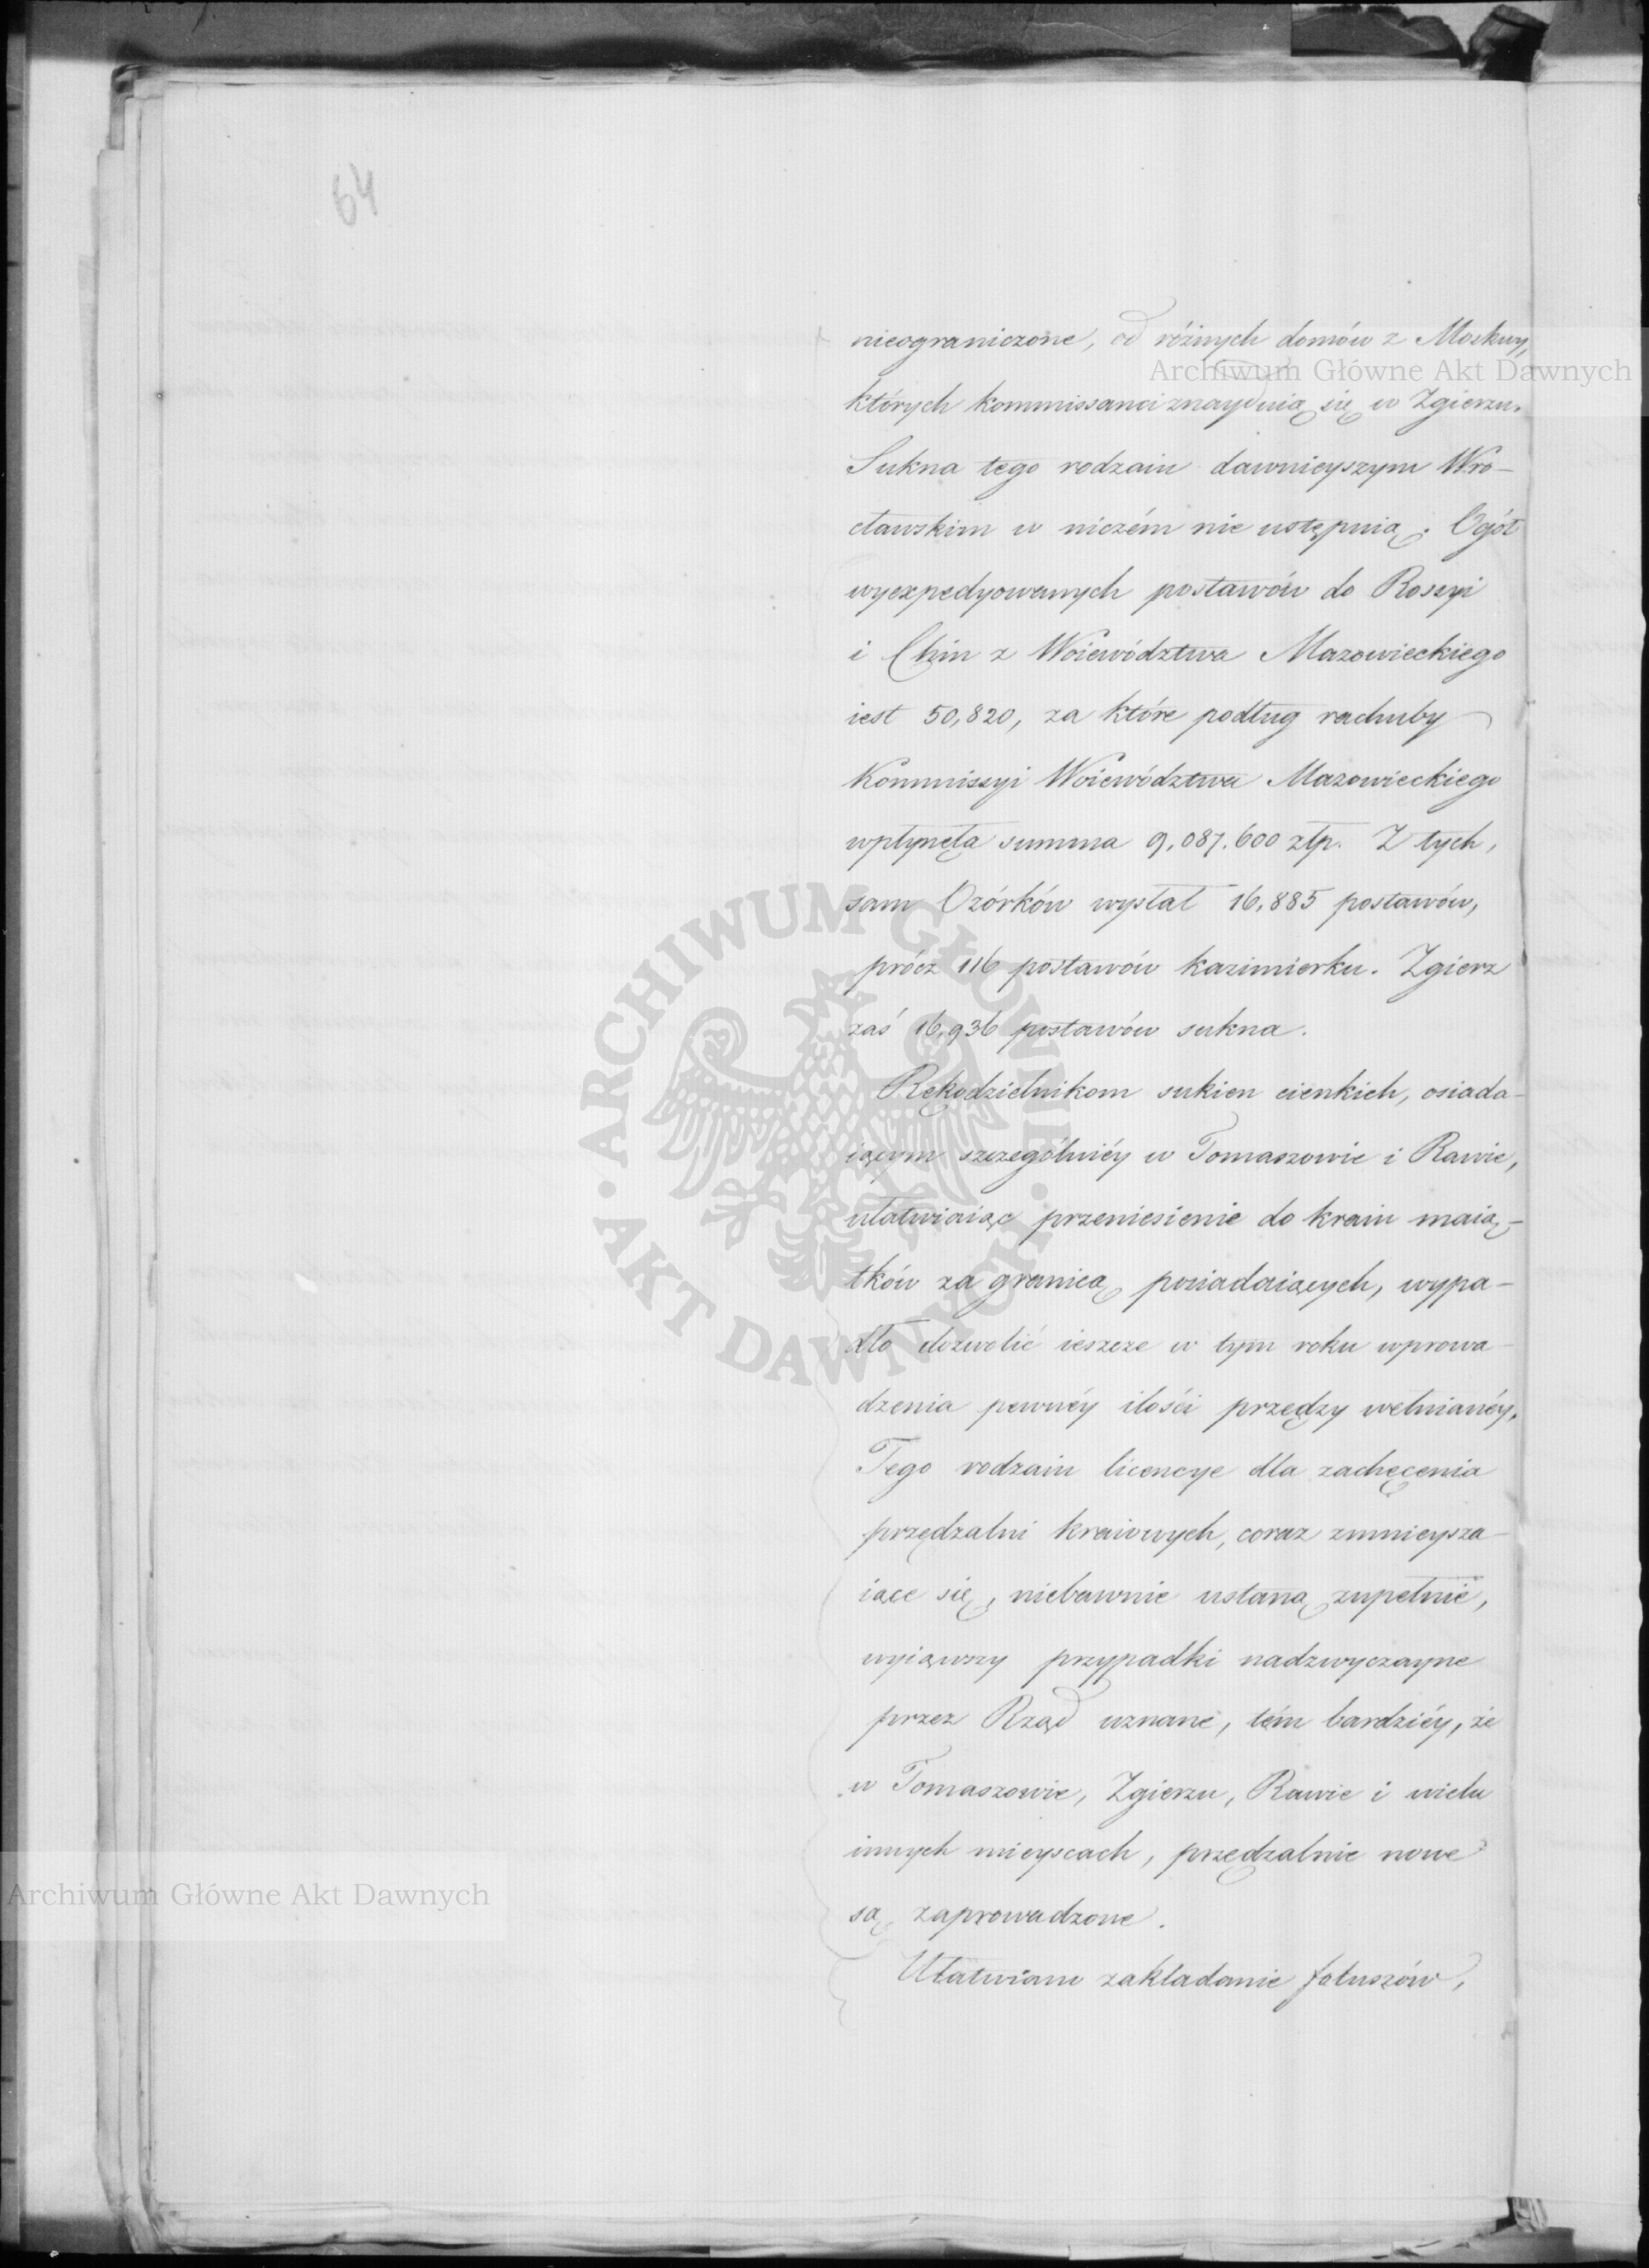 64
nieograniczone, od różnych domów z Moskwy,
których kommissanci znayduią się w Zgierzu.
Sukna tego rodzaiu dawnieyszym Wro-
cławskim w niczém nie ustępuią. Ogół
wyexpedyowanych postawów do Rossyi
i Chin z Woiewództwa Mazowieckiego
iest 50,820, za które podług rachuby
Kommissyi Woiewództwa Mazowieckiego
wpłynęła summa 9,087.600 złp. Z tych,
sam Ozórków wysłał 16,885 postawów,
prócz 116 postawów kazimierku. Zgierz
zaś 16,936 postawów sukna.
Rękodzielnikom sukien cienkich, osiada-
iącym szczególniéy w Tomaszowie i Rawie,
ułatwiaiąc przeniesienie do kraiu maią-
tków za granicą posiadaiących, wypa-
dło dozwolić ieszcze w tym roku wprowa-
dzenia pewnéy ilości przędzy wełnianéy.
Tego rodzaiu licencye dla zachęcenia
przędzalni kraiowych, coraz zmnieysza-
iące się, niebawnie ustaną zupełnie,
wyiąwszy przypadki nadzwyczayne
przez Rząd uznane, tém bardziéy, że
w Tomaszowie, Zgierzu, Rawie i wielu
innych mieyscach, przędzalnie nowe
są zaprowadzone.
Ułatwiam zakładanie foluszów,
Archiwum Główne Akt Dawnych
ARCHIWUM GŁÓWNE AKT DAWNYCH
Archiwum Główne Akt Dawnych